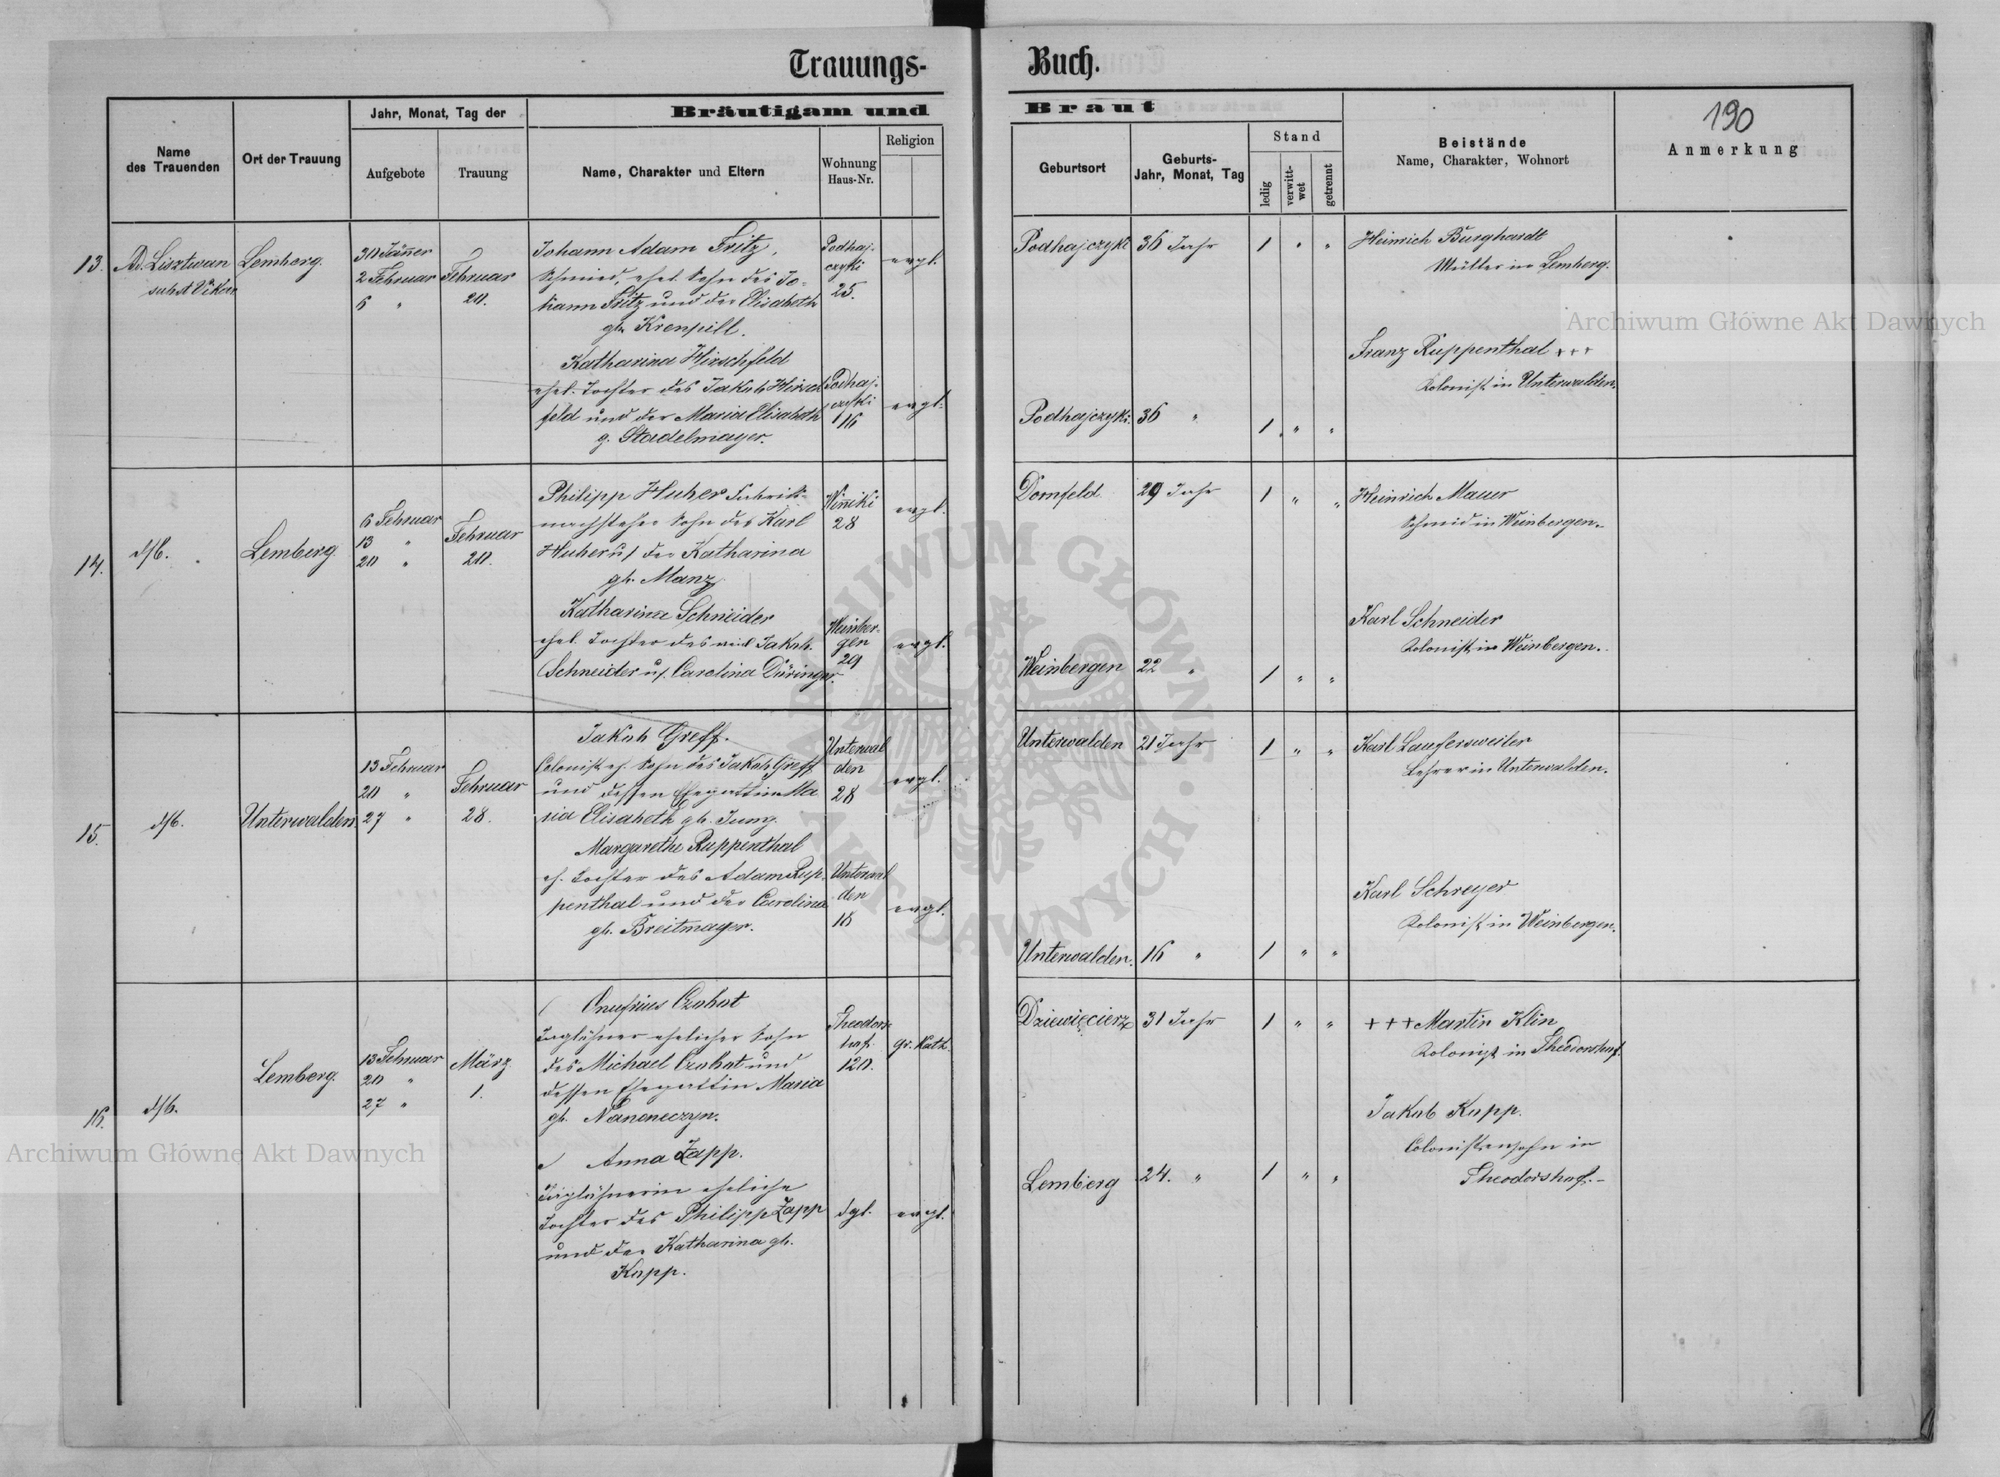 Trauungs-
Buch.
190
Name
des Trauenden
Ort der Trauung
Jahr, Monat, Tag der
Aufgebote
Trauung
Bräutigam und
Name, Charakter und Eltern
Wohnung
Haus-Nr.
Religion
Braut
Geburtsort
Geburts-
Jahr, Monat, Tag
Stand
ledig
verwitt-
wet
getrennt
Beistände
Name, Charakter, Wohnort
Anmerkung
13.
Ad. Lisztwan
subst Vikar
Lemberg.
30 Jänner
2 Februar
6 "
Februar
20.
Johann Adam Fritz,
Schmied, ehel. Sohn des Jo-
hann Fritz und der Elisabeth
gb. Krenpill.
Podhaj-
czyki
25.
evgl.
Katharina Hirschfeld
ehel. Tochter des Jakob Hirsch
feld und der Maria Elisabeth
g. Stadelmayer.
Podhaj-
czyki
16
evgl.
Podhajczyki
36 Jahr
1 " "
Podhajczyki.
36 "
1 " "
Heinrich Burghardt
Müller in Lemberg.
Franz Ruppenthal +++
Kolonist in Unterwalden.
14.
dtto.
Lemberg
6 Februar
13 "
20 "
Februar
20.
Philipp Huber
Sohn des Karl
Huber u/ der Katharina
gb. Manz
Winniki
28
evgl.
Katharina Schneider
ehel. Tochter des weil. Jakob
Schneider u/ Carolina Düringer.
Weinber-
gen
29
evgl.
Dornfeld
29 Jahr
1 " "
Weinbergen
22 "
1 " "
Heinrich Mauer
Schmied in Weinbergen.
Karl Schneider
Kolonist in Weinbergen.
15.
dtto.
Unterwalden
13 Februar
20 "
27 "
Februar
28.
Jakob Greff.
Colonist eh. Sohn des Jakob Greff
und dessen Ehegattin Ma
ria Elisabeth gb. Jung.
Unterwal
den
28
evgl.
Margarethe Ruppenthal
eh. Tochter des Adam Rup-
penthal und der Carolina
gb. Breitmayer.
Unterwal
den
18
evgl.
Unterwalden
21 Jahr
1 " "
Unterwalden.
16 "
1 " "
Karl Laufersweiler
Lehrer in Unterwalden.
Karl Schreyer
Kolonist in Weinbergen.
16.
dtto.
Lemberg.
13 Februar
20 "
27 "
März
1.
Onufrius Czabat
Taglöhner ehelicher Sohn
des Michael Czabat und
dessen Ehegattin Maria
gb.
Theodors-
hof
120.
gr. kath.
Anna Zapp.
Taglöhnerin eheliche
Tochter des Philipp Zapp
und der Katharina gb.
Kopp.
dgl.
evgl.
Dziewięcierz
31 Jahr
1 " "
Lemberg
24. "
1 " "
+++ Martin Klin
Kolonist in Theodorshof.
Jakob Kopp.
Colonistensohn in
Theodorshof.-
Archiwum Główne Akt Dawnych
Archiwum Główne Akt Dawnych
ARCHIWUM GŁÓWNE AKT DAWNYCH